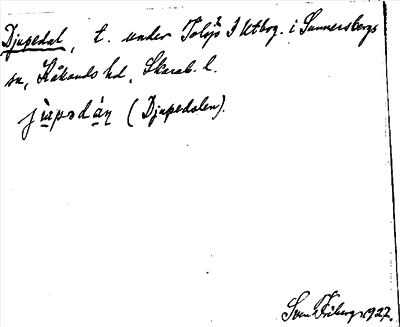 Djupedal, t. under Tolsjö I Utbog. i Sunnersbergs
sn, Kålands hd, Skarab. l.
jùpədán (Djupedalen).
Sven Friberg 1927.